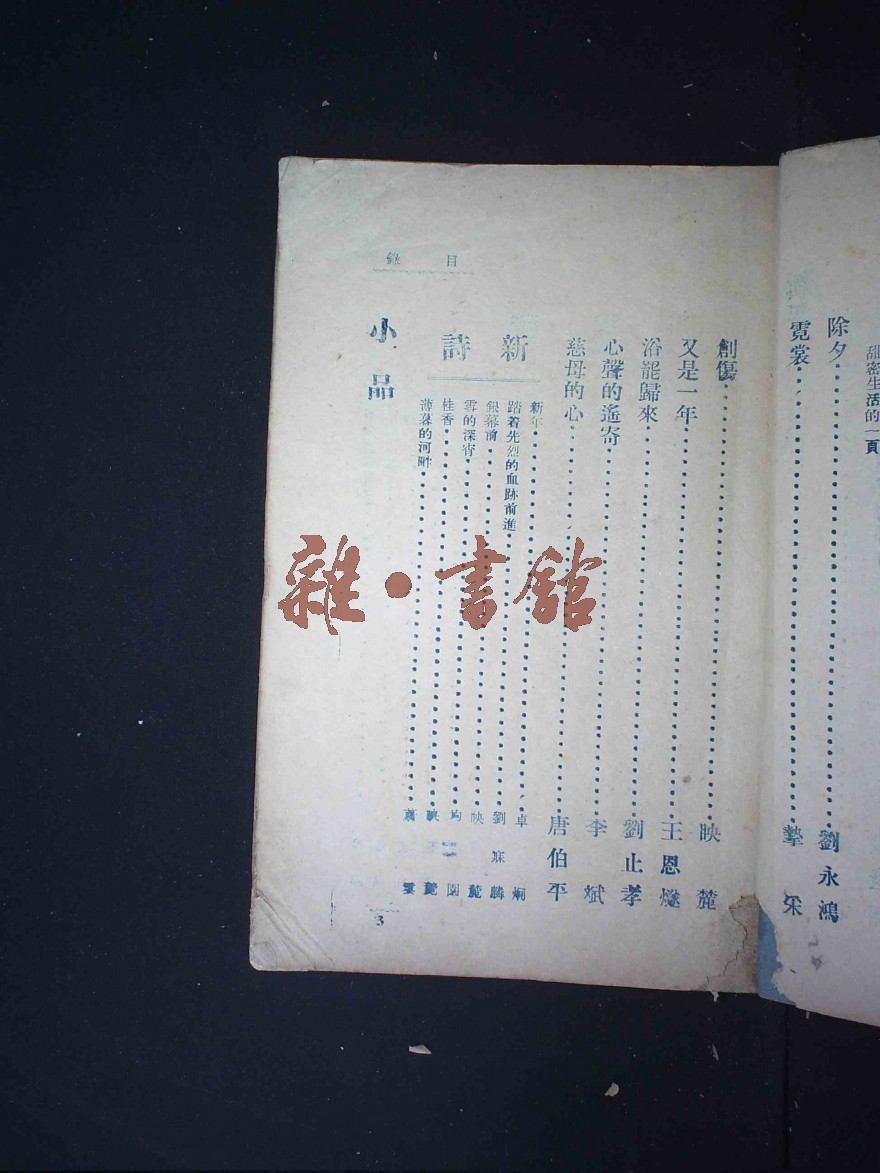 甜密生活的一頁
除夕 劉永鴻
霓裳
目錄
創傷 映麓
又是一年 王恩燧
浴罷歸來 劉止孝
心聲的遙寄 李斌
慈母的心 唐伯平
新詩
新年 卓炯
踏着先烈的血跡前進 劉寐麟
銀幕前 映麓
雪的深宵 均園
桂香 映麓
薄暮的河畔
小品
3
雜·書館